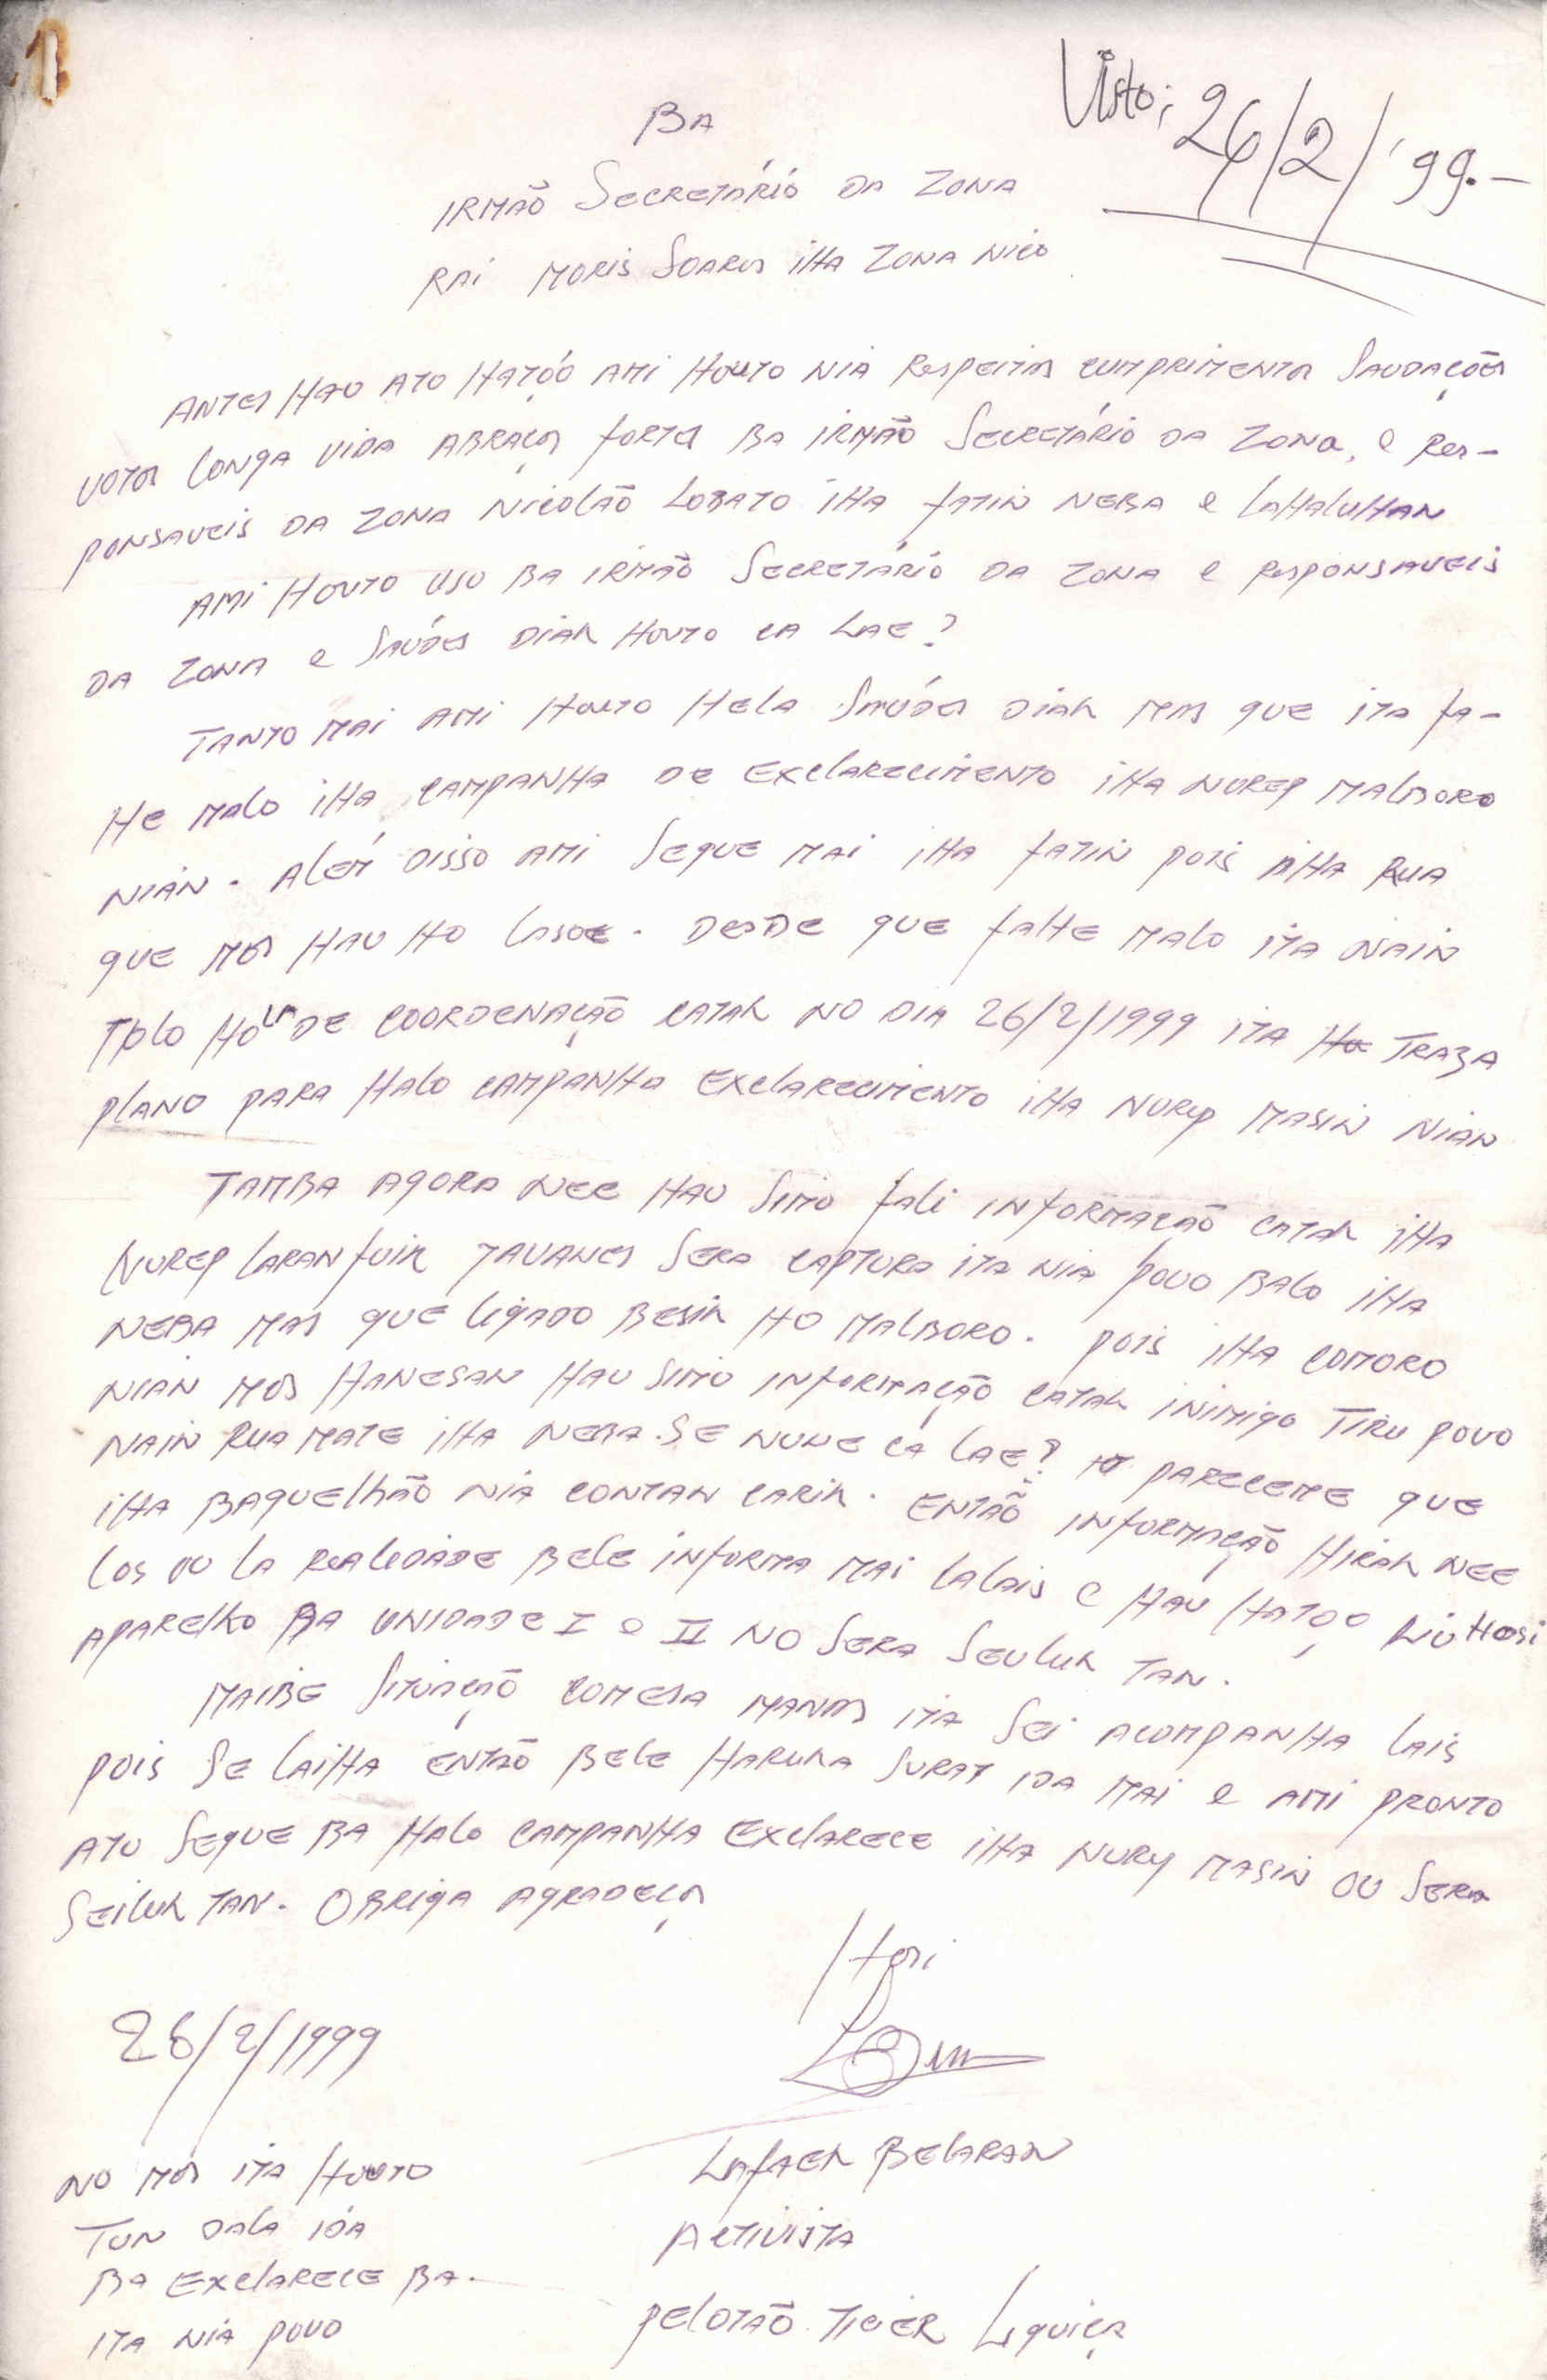 Visto; 26/2/'99.-
BA
IRMÃO SECRETÁRIÓ DA ZONA
RAI MORIS SOARES IHA ZONA NICO
ANTES HAU ATO HATÓO AMI HOUTO NIA RESPEITOS CUMPRIMENTOS SAUDAÇÕES
VOTOS LONGA VIDA ABRAÇOS FORTES BA IRMÃO SECRETÁRIO DA ZONA, e RES-
PONSAVEIS DA ZONA NICOLÃO LOBATO IHA FATIN NEBA e LAHALUHAN
AMI HOUTO USU BA IRMÃO SECRETÁRIO DA ZONA e RESPONSAVEIS
DA ZONA e SAÚDES DIAK HOUTO CA LAE?
TANTO MAI AMI HOUTO HELA SAÚDES DIAK MAS QUE ITA FA-
HE MALO IHA CAMPANHA DE EXCLARECIMENTO IHA NUREP MALBORO
NIAN. ALÉM DISSO AMI SEQUE MAI IHA FATIN POIS IHA RUA
QUE MÓS HAU HO LASOE. DESDE QUE FAHE MALO ITA NAIN
TOLO HÓ DE COORDENAÇÃO CATAK NO DIA 26/2/1999 ITA TRAZA
PLANO PARA HALO CAMPANHA EXCLARECIMENTO IHA NUREP MASIN NIAN
TAMBA AGORA NEE HAU SIMO FALI INFORMAÇÃO CATAK IHA
NUREP LARAN FUIK JAVANES SERA CAPTURA ITA NIA POVO BALO IHA
NEBA MAS QUE LIGADO BESIK HO MALBORO. POIS IHA COMORO
NIAN MOS HANESAN HAU SIMO INFORMAÇÃO CATAK INIMIGO TIRU POVO
NAIN RUA MATE IHA NEBA. SE NUNE CA LAE? PARECEME QUE
IHA BAQUELHÃO NIA CONTAN CARIK. ENTÃO INFORMAÇÃO HIRAK NEE
LOS OU LA REALIDADE BELE INFORMA MAI LALAIS e HAU HATOO LIU HOSI
APARELHO BA UNIDADE I e II NO SERA SEULUK TAN.
MAIBE SITUAÇÃO COMESA MANAS ITA SEI ACOMPANHA LAIS
POIS SE LAIHA ENTÃO BELE HARUKA SURAT IDA MAI e AMI PRONTO
ATU SEQUE BA HALO CAMPANHA EXCLARECE IHA NUREP MASIN OU SERA
SEILUK TAN. OBRIGA AGRADEÇO
HOSI
26/2/1999
LAFAEK BELARAN
ACTIVISTA
PELOTÃO TIGER LIQUIÇA
NO MÓS ITA HOUTO
TUN DALA IDA
BA EXCLARECE BA.
ITA NIA POVO